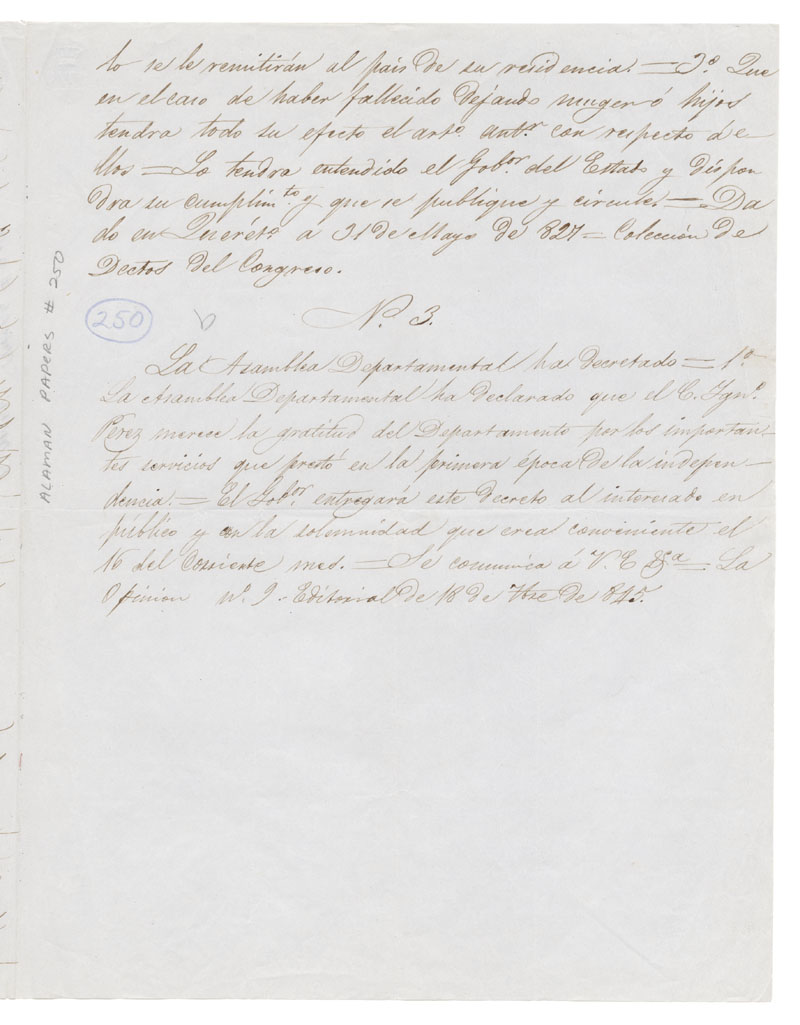 to se le remitirán al pais de su residencia. = 3º. Que
en el caso de haber fallecido dejando muger ó hijos
tendra todo su efecto el arto. antr. con respecto á e-
llos = Lo tendra entendido el Gobor. del Estado y dispon
dra su cumplimto. y que se publique y circule = Da
do en Querétº. a 31 de Mayo de 827 = Colección de
Dectos del Congreso.
250
Nº. 3.
La Asamblea Departamental ha decretado = 1º.
La Asamblea Departamental ha declarado que el C. Ignº.
Perez merece la gratitud del Departamento por los importan-
tes servicios que prestó en la primera época de la indepen-
dencia. = El Gobor. entregará este decreto al interesado en
público y con la solemnidad que crea conveniente el
16 del corriente mes. = Se comunica á V. E &a = La
Opinion nº. 9. Editorial de 18 de 7bre de 845.
ALAMAN PAPERS # 250